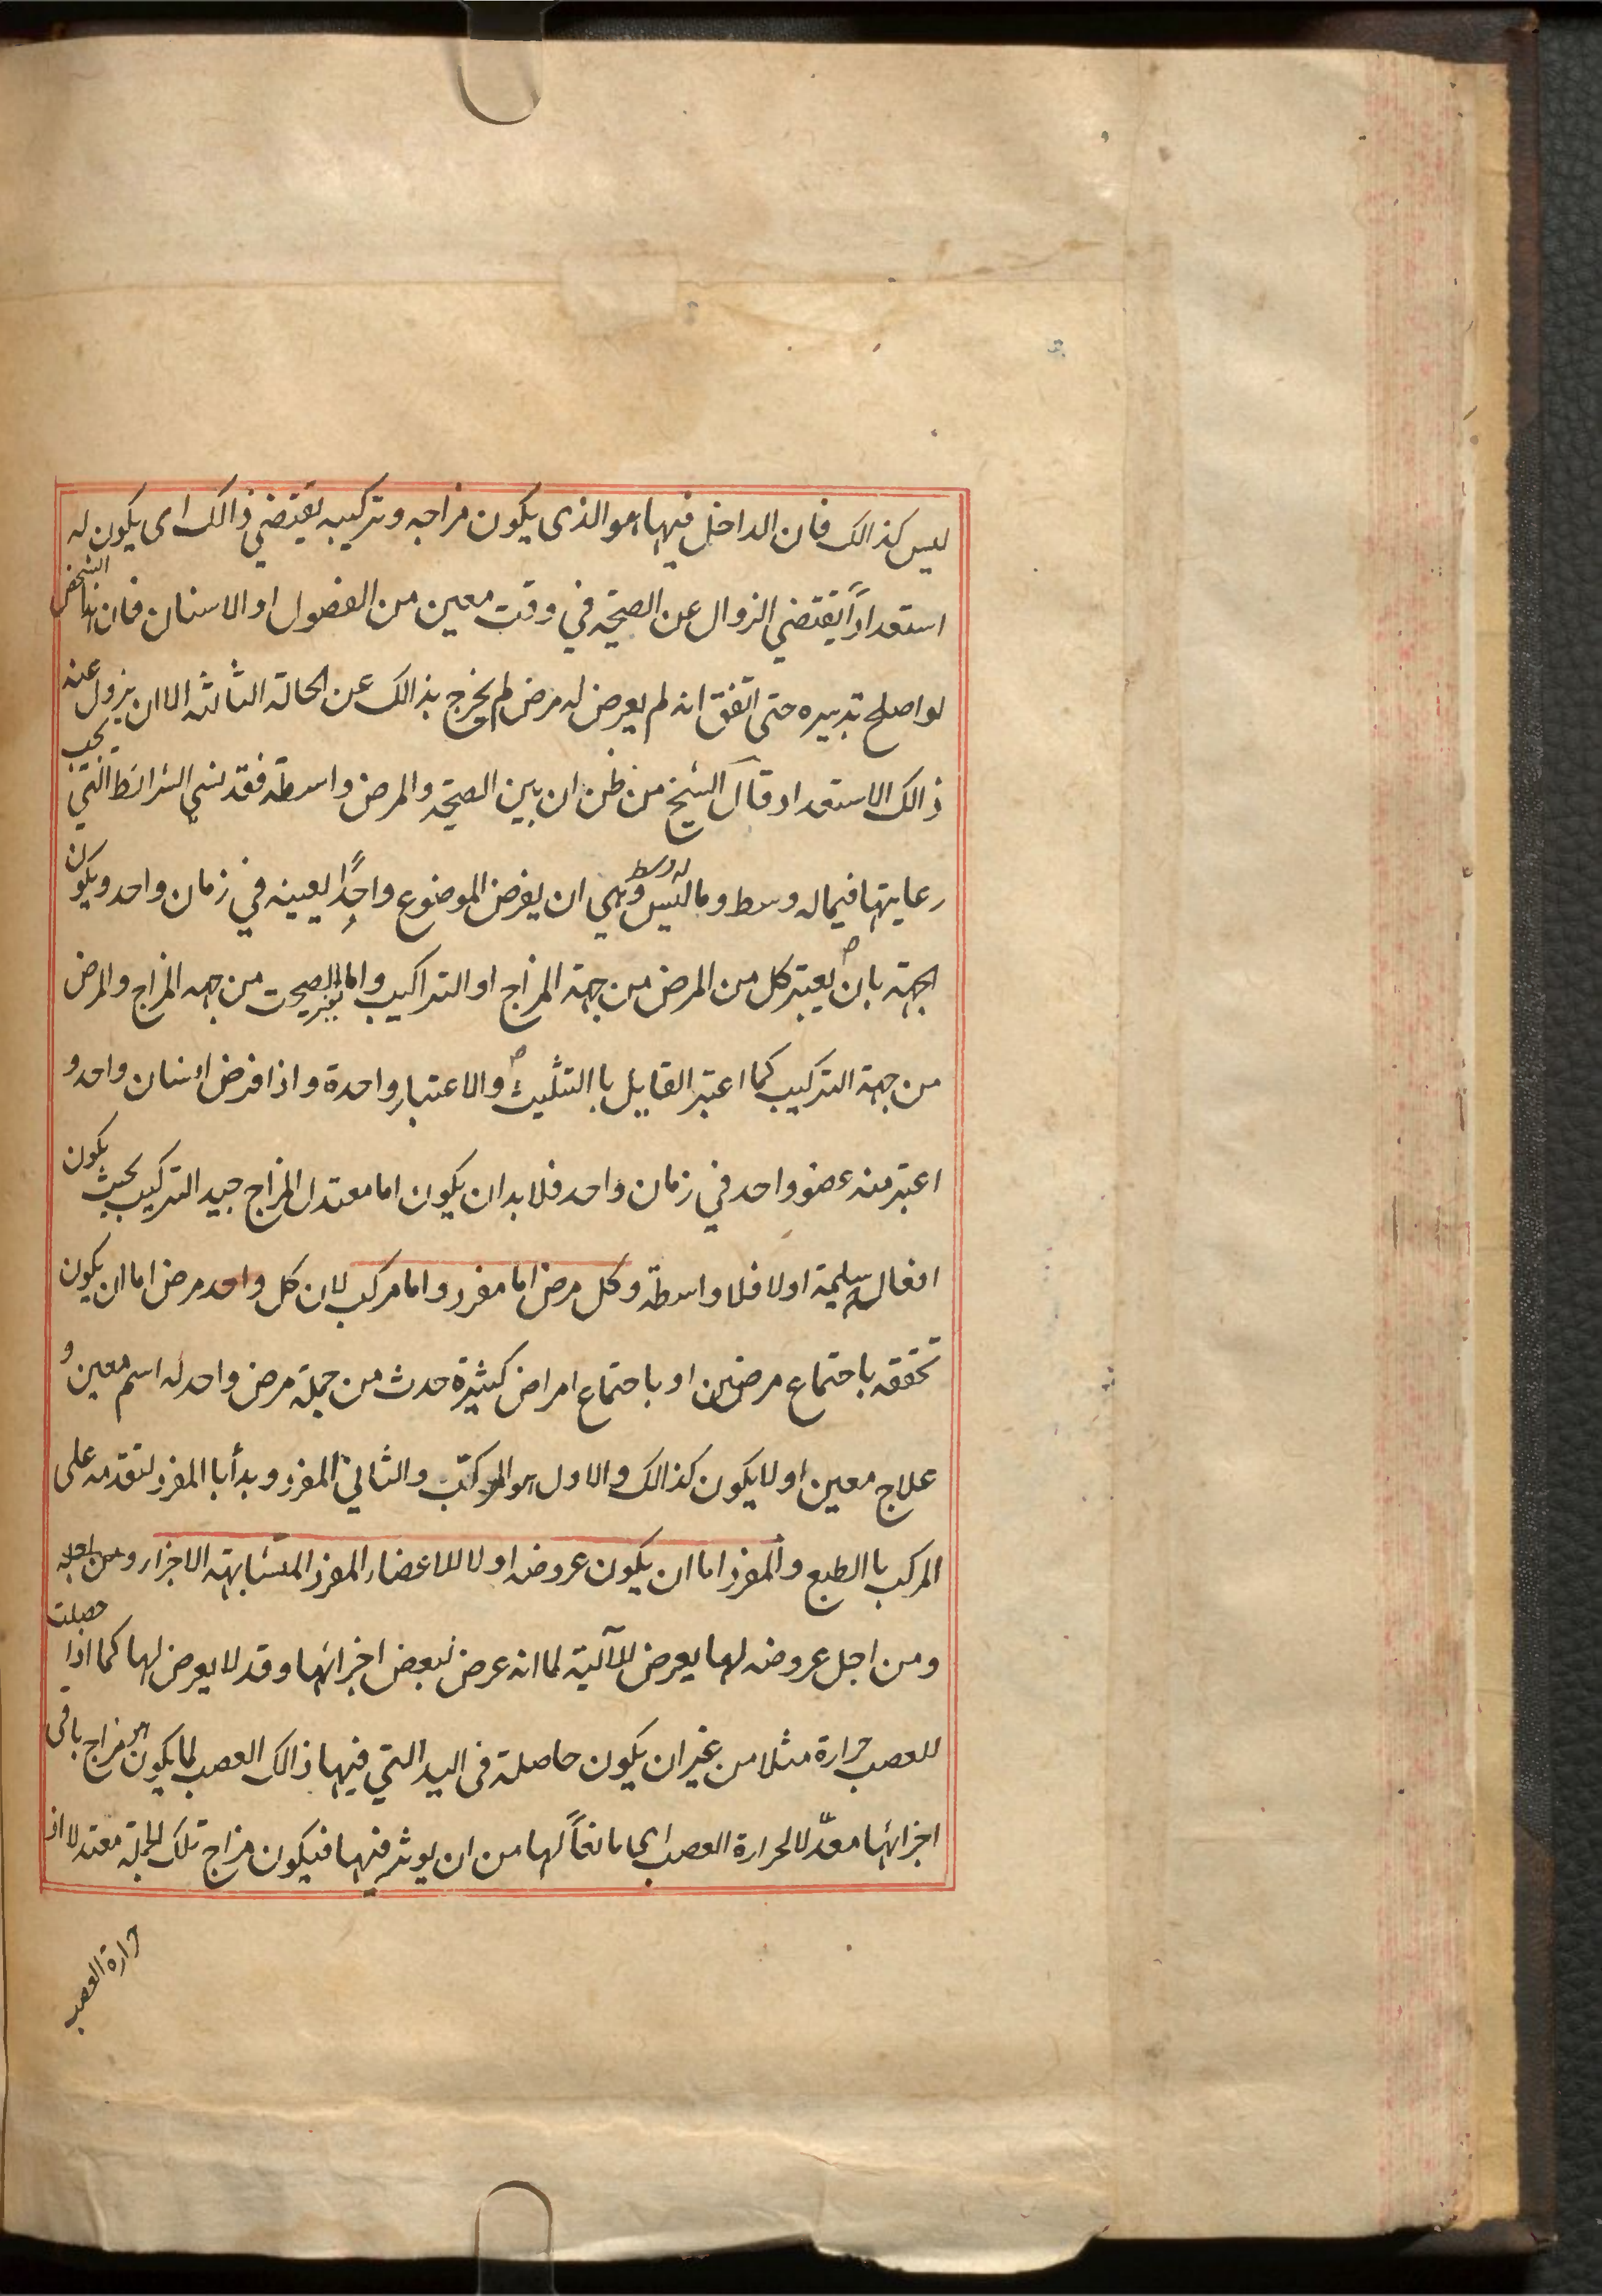 ليس كذالك فان الداخل فيها هو الذى يكون مزاجه وتركيبه يقتضي ذالك اى يكون له
استعداداً يقتضي الزوال عن الصحّة في وقت معين من الفصول او الاسنان فان هذا الشخص
لو اصلح تدبيره حتى اتفق انه لم يعرض له مرض لم يخرج بذالك عن الحالة الثالثه الا ان يزول عنه
ذالك الاستعداد قال الشيخ من ظن ان بين الصحّة والمرض واسطة فقد نسي الشرائط التي يجب
رعايتها فيما له وسط وما ليس له وسط وهي ان يفرض الموضوع واحدًا بعينه في زمان واحد ويكون
الجهة بان يعتبر كل من المرض من جهة المزاج او التراكيب واما الصحت من جهه المزاج والمرض
من جهة التركيب كما اعتبر القايل با التثليث والاعتبار واحدة واذا فرض انسان واحد و
اعتبر منه عضو واحد في زمان واحد فلا بد ان يكون اما معتدل المزاج جيد التركيب بحيث يكون
افعاله سليمة اولا فلا واسطة وكل مرض اما مفرد واما مركب لان كل واحد مرض اما ان يكون
تحققه باجتماع مرضين او باجتماع امراض كثيرة حدث من جملة مرض واحد له اسم معين و
علاج معين او لا يكون كذالك والاول هو المركب والثاني المفرد وبدأ با المفرد لتقدمه على
المركب با الطبع والمفرد اما ان يكون عروضه اولا للاعضاء المفرد المتشابهة الاجزاء ومن اجله
ومن اجل عروضه لها يعرض للآلية لما انه عرض لبعض اجزائها وقد لا يعرض لها كما اذا حصلت
للعصب حرارة مثلا من غير ان يكون حاصلة فى اليد التي فيها ذالك العصب لما يكون مزاج باقى
اجزائها معدّلا لحرارة العصب اى مانعاً لها من ان يوثر فيها فيكون مزاج تلك الجملة معتدلا اذ
حرارة العصب